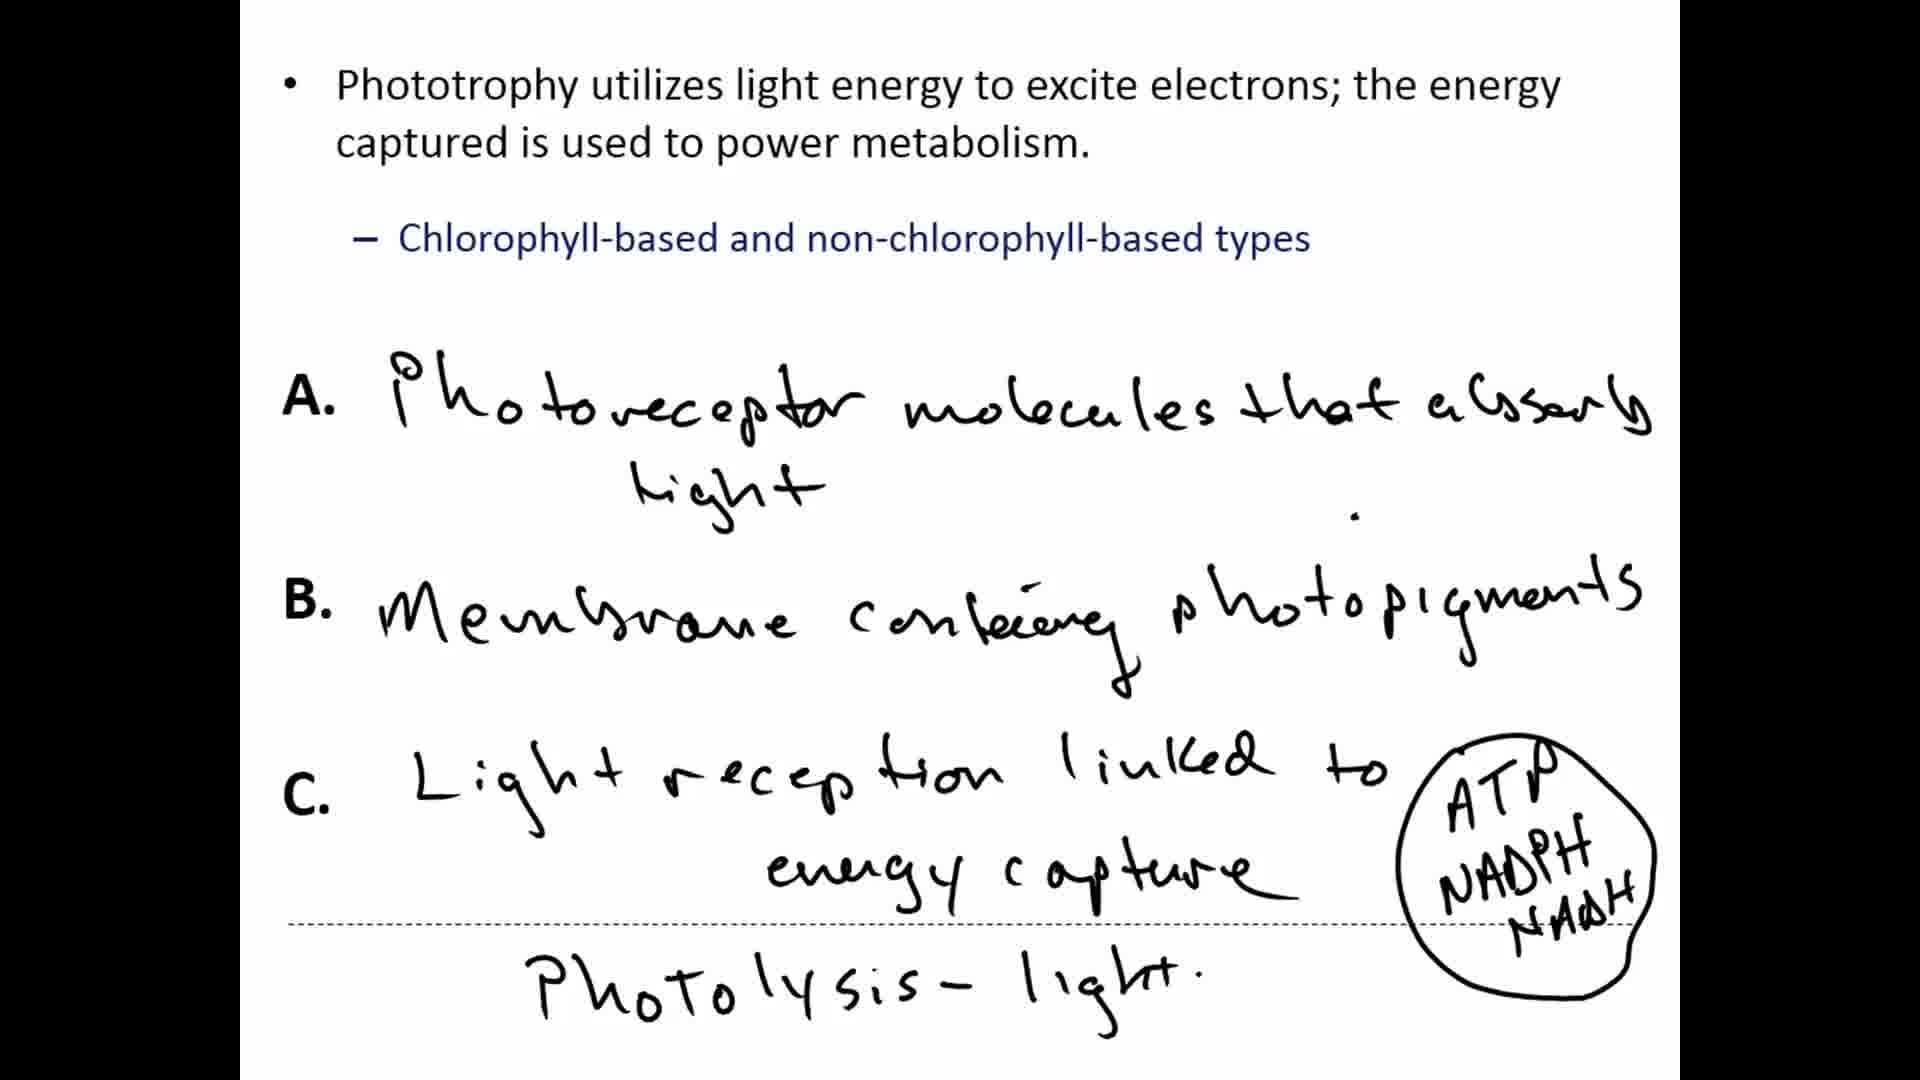 • Phototrophy utilizes light energy to excite electrons; the energy
captured is used to power metabolism.
– Chlorophyll-based and non-chlorophyll-based types
A. Photoreceptor molecules that absorb
light
B. Membrane containing photopigments
C. Light reception linked to
energy capture
ATP
NADPH
NADH
Photolysis - light.